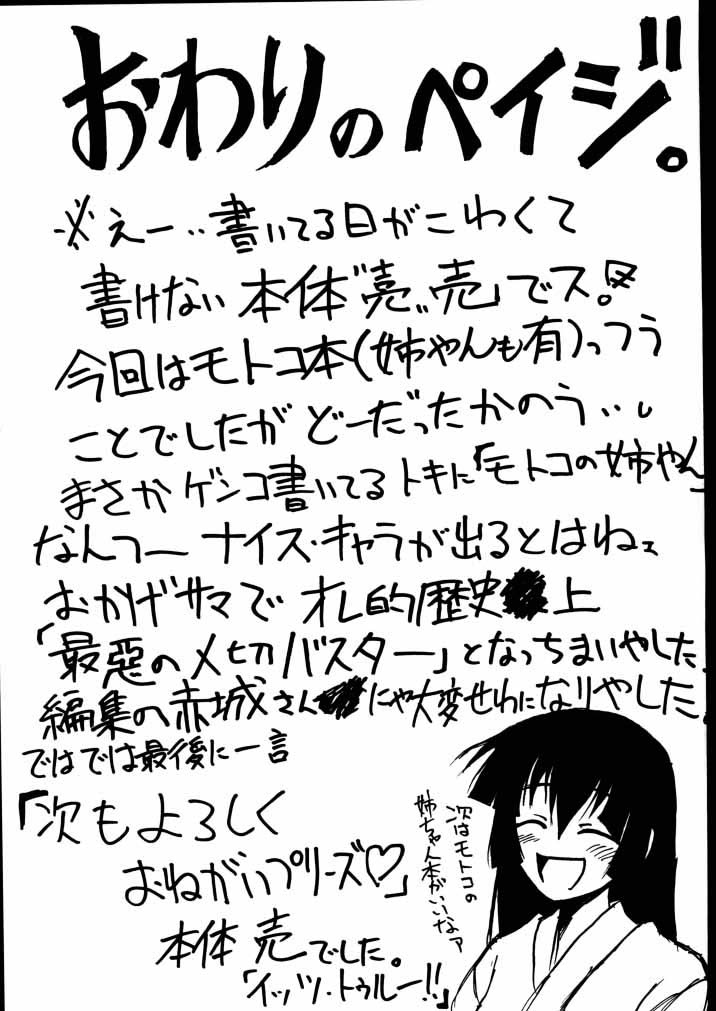 おわりのペイジ。
※えー‥書いてる日がこわくて
書けない 本体"売〟売」でス。
今回はモトコ本(姉やんも有)っつう
ことでしたが どーだったかのう‥。
まさか ゲンコ書いてる トキに「モトコの姉やん」
なんつー ナイス・キャラが出るとはねェ
おかげサマで オレ的歴史上
「最悪の〆切バスター」となっちまいやした。
編集の赤城さんにゃ大変せわになりやした。
ではでは最後に一言
「次もよろしく
おねがいプリーズ♡」
本体 売でした。
「イッツ・トゥルー!!」
次はモトコの
姉ちゃん本がいいなァ